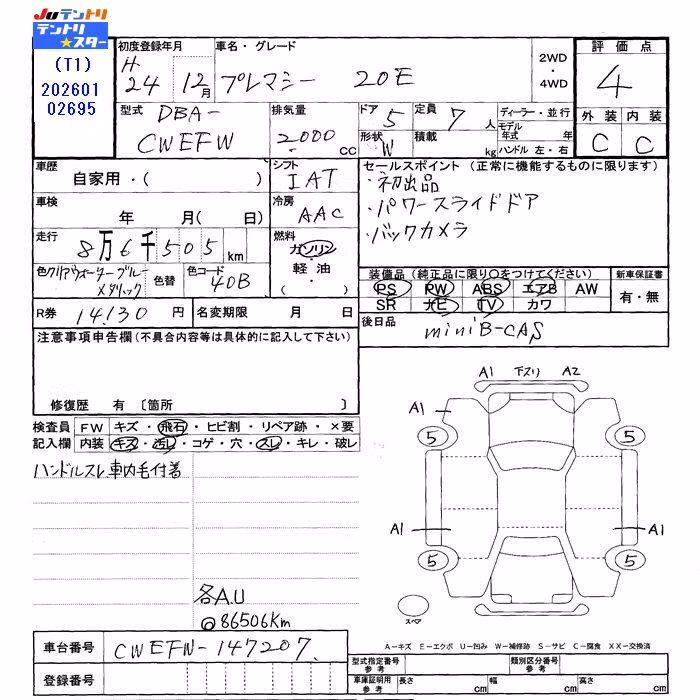 Juテントリ
テントリ
★スター
(T1)
202601
02695
初度登録年月
H
24年 12月
車名・グレード
プレマシー 20E
2WD
・
4WD
評価点
4
外装 内装
C C
型式
DBA-
CWEFW
排気量
2000
cc
ドア
5
定員
7
人
形状
W
積載
kg
ディーラー・並行
モデル
年式 年
ハンドル 左・右
車歴
自家用・( )
シフト
IAT
車検
年 月( 日)
冷房
AAC
走行
8万6千505km
燃料
ガソリン
軽油
・
( )
色クリアウォーターブルー
メタリック
色替
色コード
40B
セールスポイント (正常に機能するものに限ります)
・初出品
・パワースライドドア
・バックカメラ
装備品 (純正品に限り○をつけてください)
PS PW ABS エアB AW
SR ナビ TV カワ
新車保証書
有・無
R券 14130 円
名変期限 月 日
後日品
miniB-CAS
注意事項申告欄(不具合内容等は具体的に記入して下さい)
修復歴 有 〔箇所 〕
検査員
記入欄
FW キズ・飛石・ヒビ割・リペア跡・×要
内装 キズ・汚レ・コゲ・穴・スレ・キレ・破レ
ハンドルスレ 車内毛付着
各A.U
@86506Km
A1 下スリ A2
A1
5 5
A1 A1
5 5
スペア
車台番号 CWEFW-147207
登録番号
A-キズ E-エクボ U-凹み W-補修跡 S-サビ C-腐食 XX-交換済
型式指定番号
参考
類別区分番号
参考
車庫証明用
参考
長さ cm 幅 cm 高さ cm